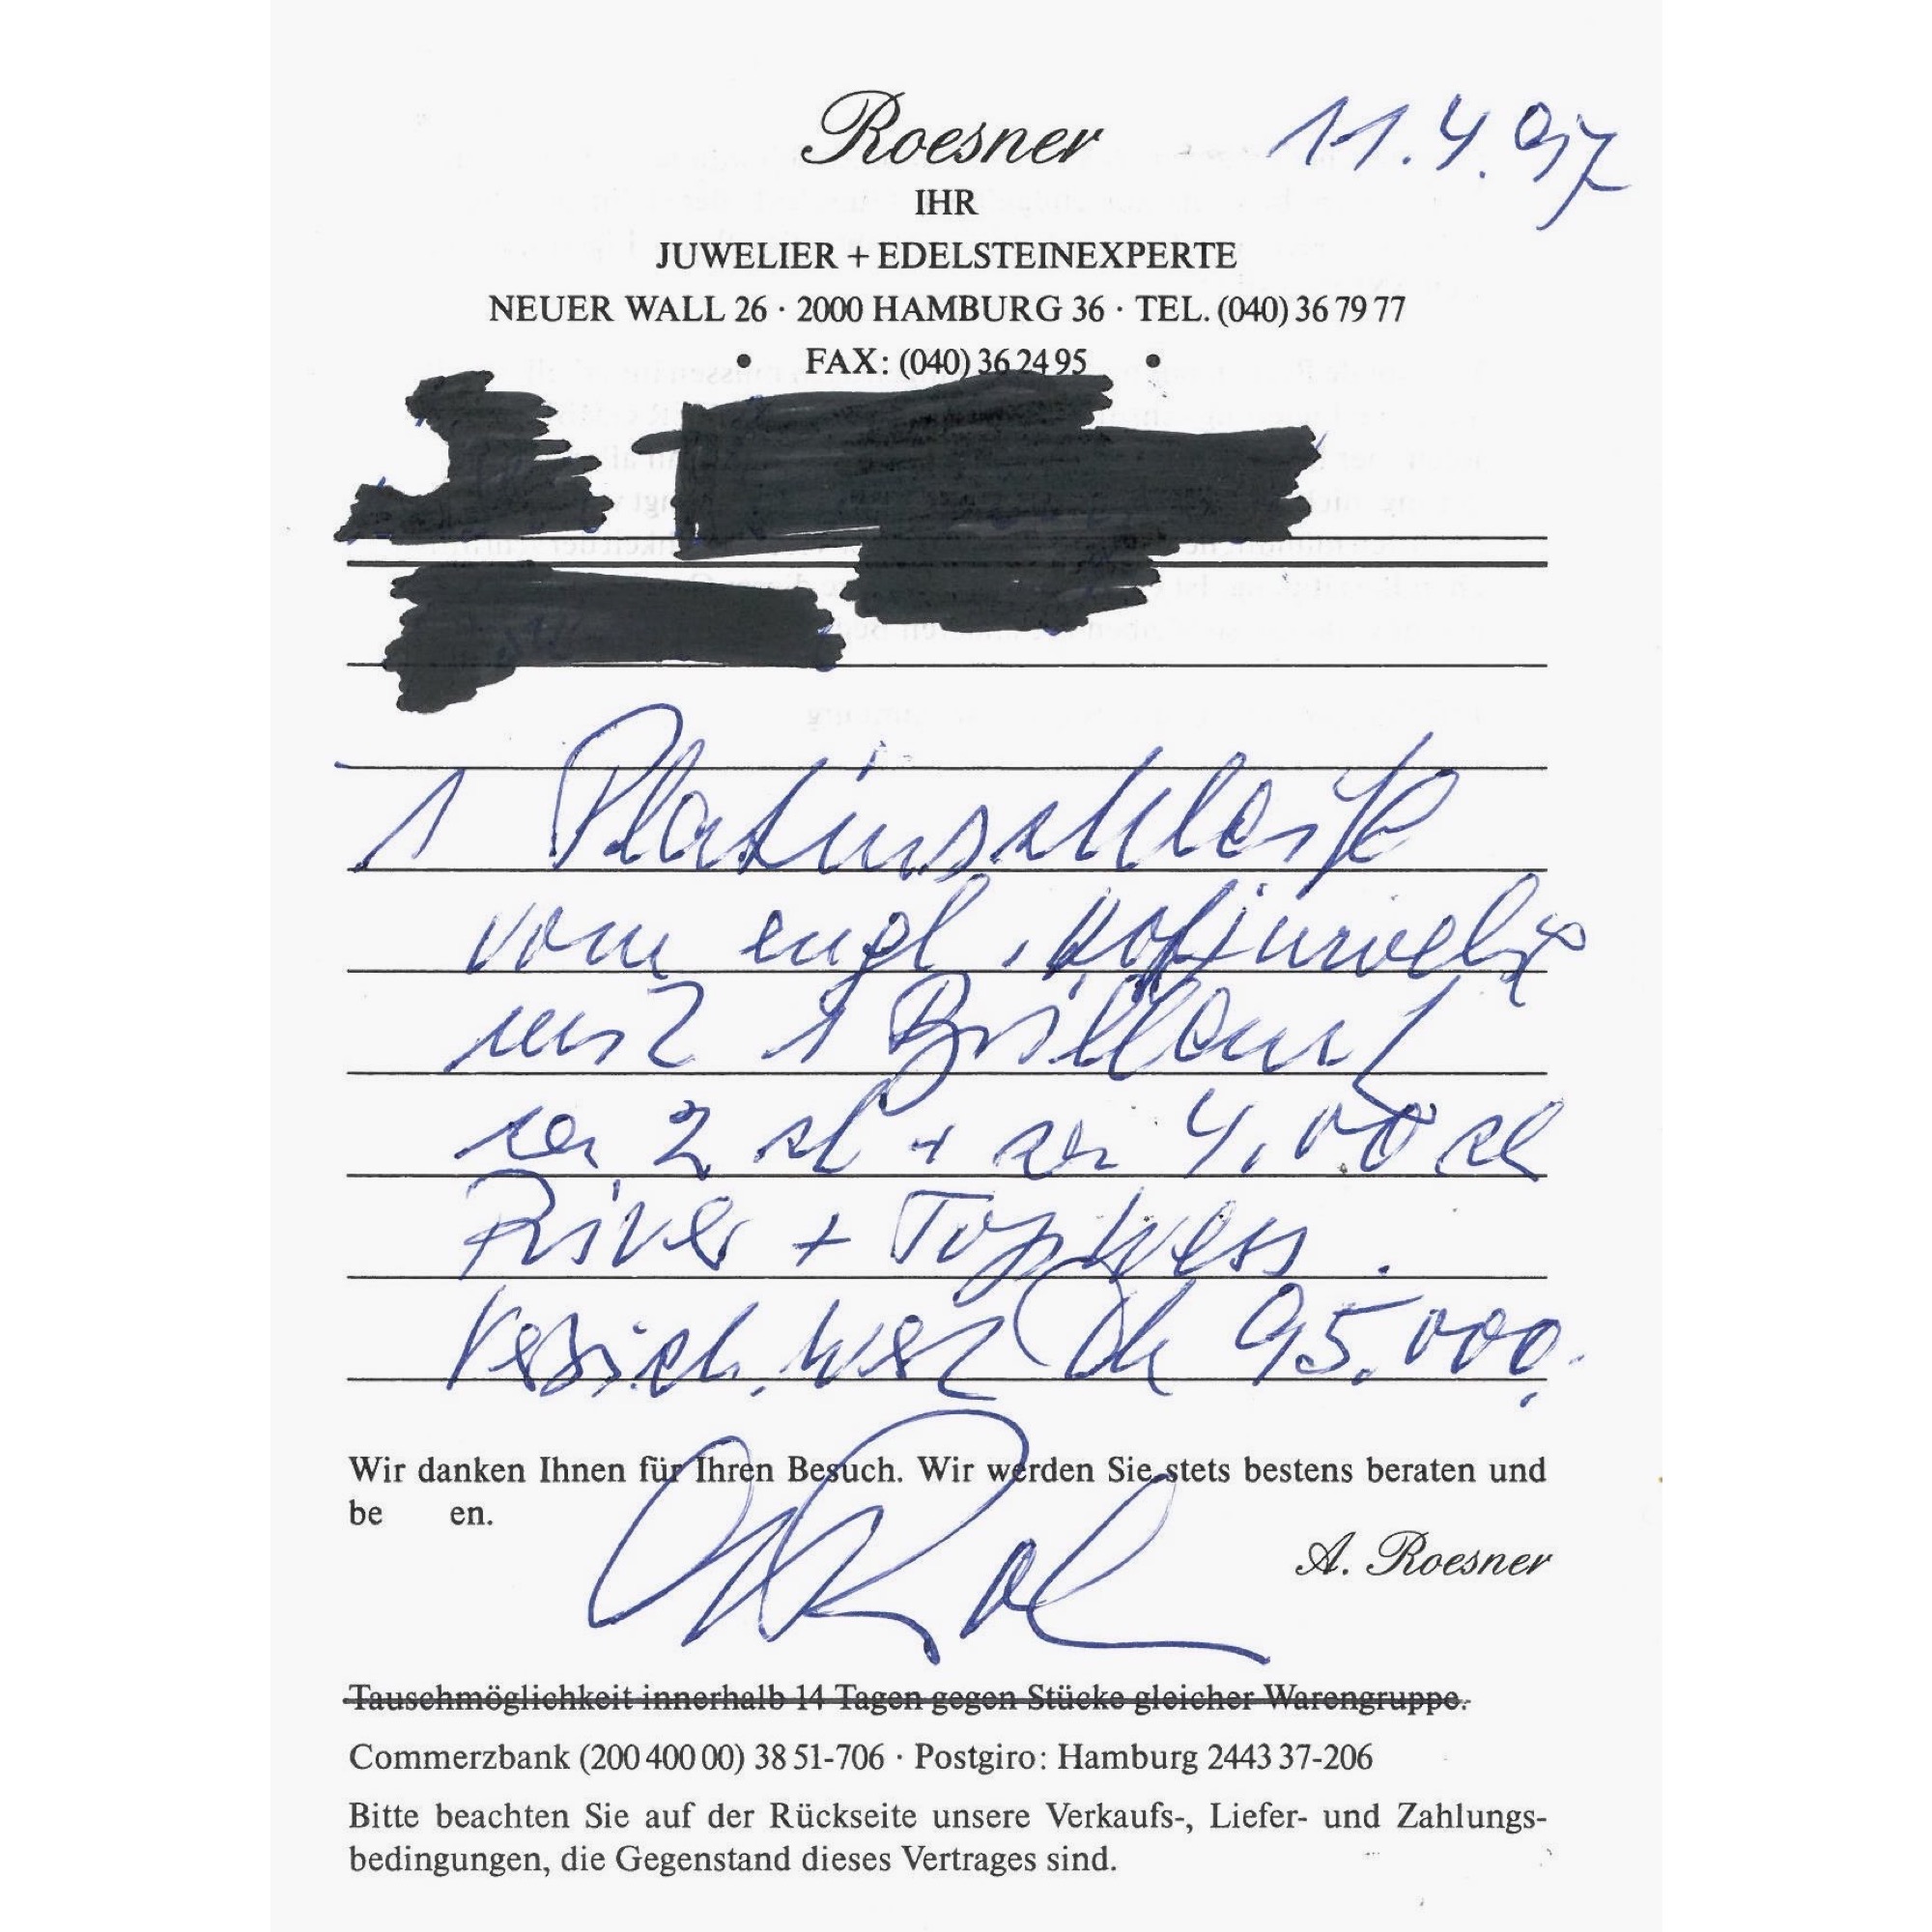 Roesner
11.4.97
IHR
JUWELIER + EDELSTEINEXPERTE
NEUER WALL 26 · 2000 HAMBURG 36 · TEL. (040) 36 79 77
• FAX: (040) 36 24 95 •
1 Platinschleife
vom engl. Hofjuwelier
mit 1 Brillant
ca 2 ct + ca 4,00 ct
River + Top Wess.
Versich. Wert DM 95.000.
Wir danken Ihnen für Ihren Besuch. Wir werden Sie stets bestens beraten und
be en.
A. Roesner
Tauschmöglichkeit innerhalb 14 Tagen gegen Stücke gleicher Warengruppe.
Commerzbank (200 400 00) 38 51-706 · Postgiro: Hamburg 2443 37-206
Bitte beachten Sie auf der Rückseite unsere Verkaufs-, Liefer- und Zahlungs-
bedingungen, die Gegenstand dieses Vertrages sind.